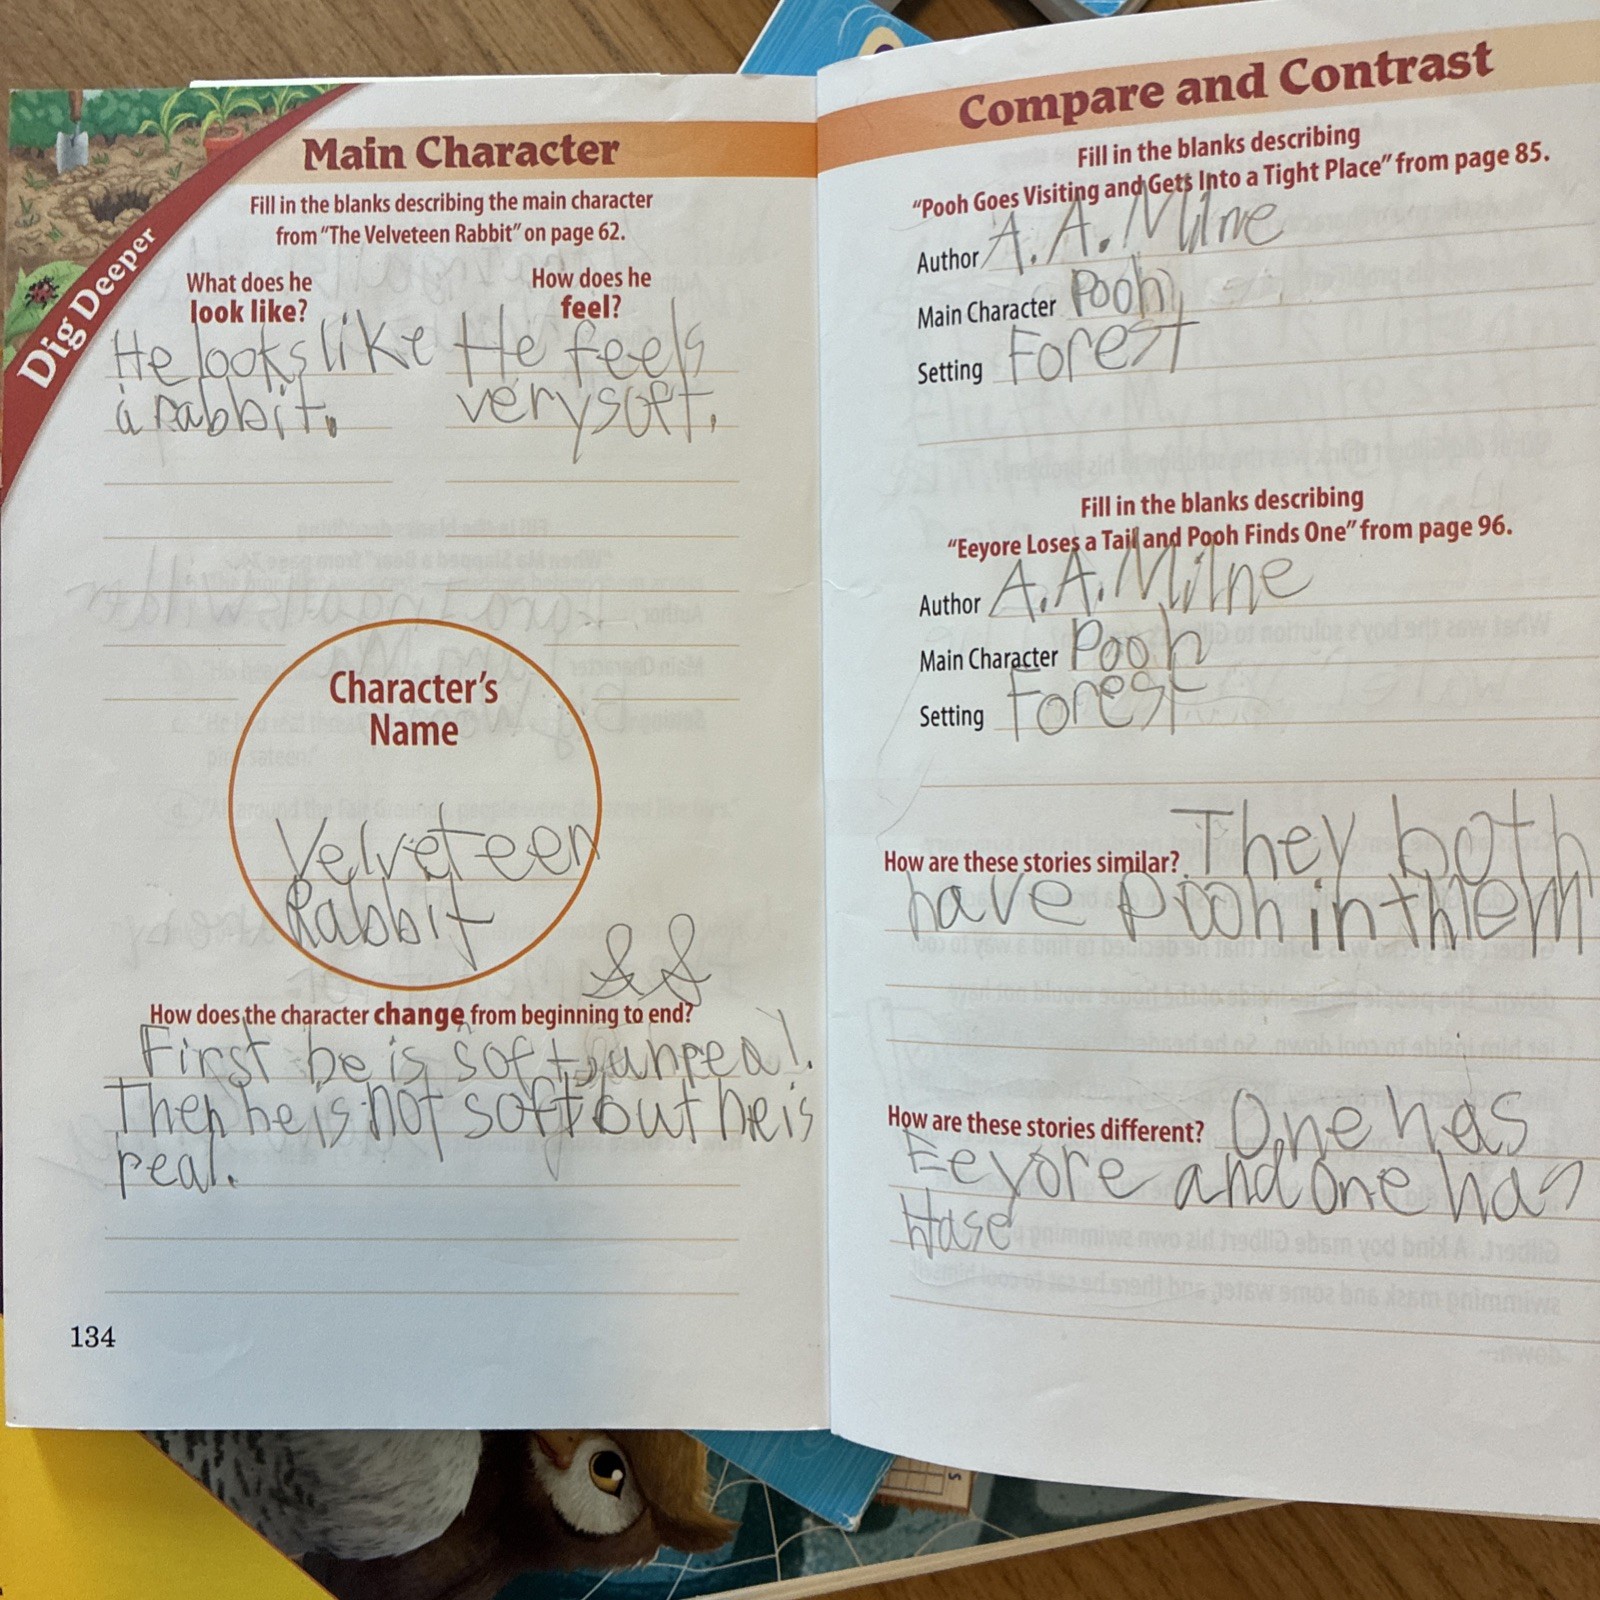 Main Character
Fill in the blanks describing the main character
from "The Velveteen Rabbit" on page 62.
Dig Deeper
What does he
look like?
He looks like
a rabbit.
How does he
feel?
He feels
very soft.
Character's
Name
Velveteen
Rabbit
&&
How does the character change from beginning to end?
First he is soft, unreal.
Then he is not soft but he is
real.
134
Compare and Contrast
Fill in the blanks describing
"Pooh Goes Visiting and Gets Into a Tight Place" from page 85.
Author A. A. Milne
Main Character Pooh
Setting Forest
Fill in the blanks describing
"Eeyore Loses a Tail and Pooh Finds One" from page 96.
Author A. A. Milne
Main Character Pooh
Setting Forest
How are these stories similar? They both
have Pooh in them
How are these stories different? One has
Eeyore and one has
Hase